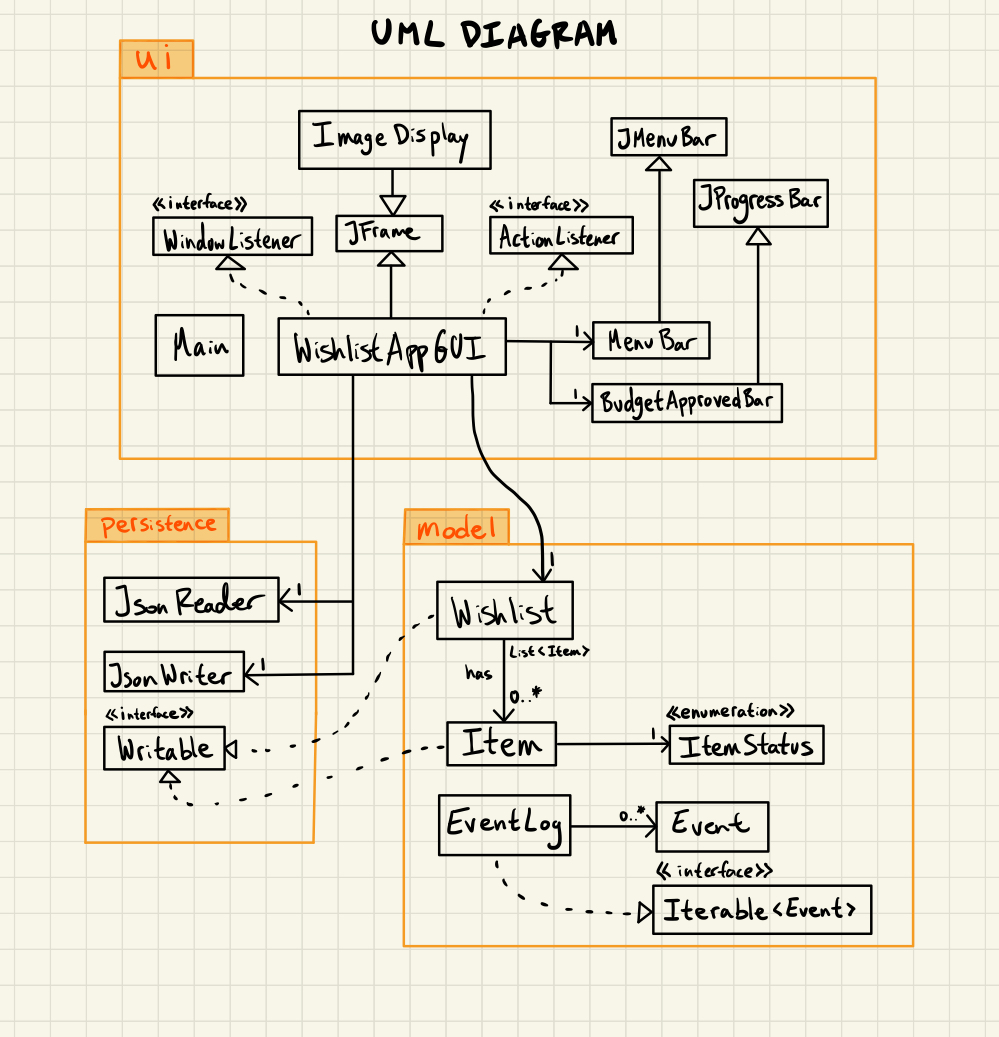 UML DIAGRAM
ui
Image Display
JMenuBar
JProgressBar
<<interface>>
WindowListener
JFrame
<<interface>>
ActionListener
Main
WishlistAppGUI
1
MenuBar
1
BudgetApprovedBar
persistence
model
JsonReader
1
1
Wishlist
List<Item>
has
0..*
JsonWriter
1
<<interface>>
Writable
Item
<<enumeration>>
1
ItemStatus
EventLog
0..*
Event
<<interface>>
Iterable<Event>